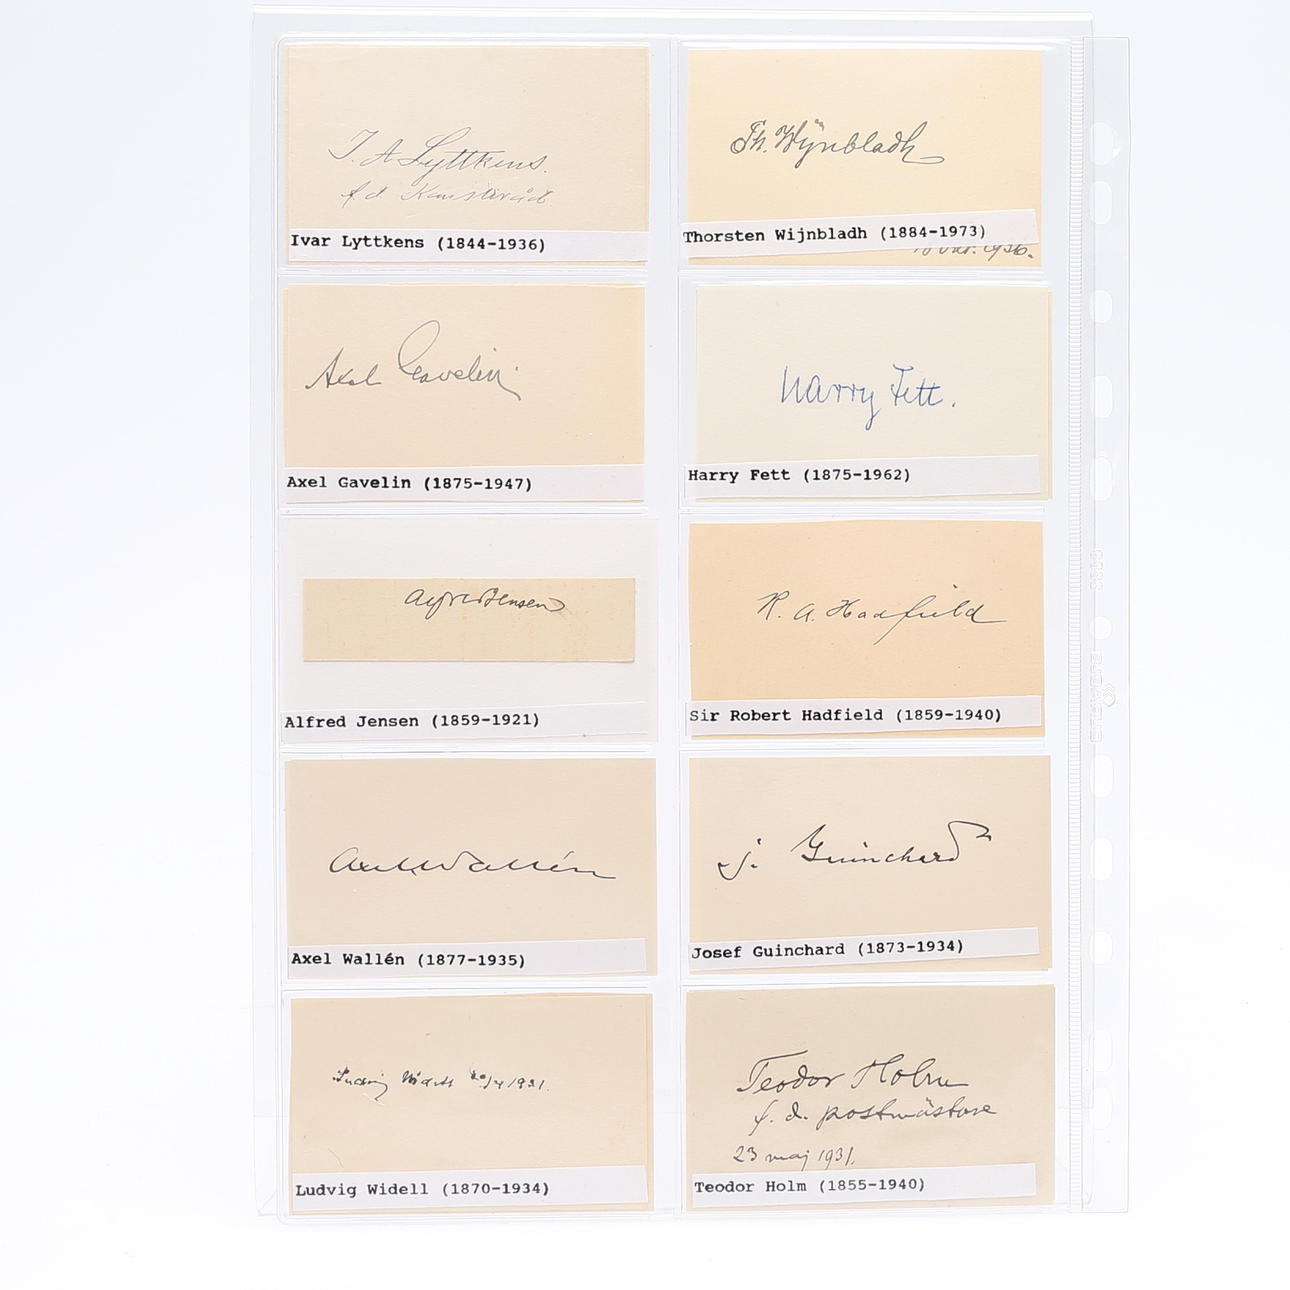 I. A. Lyttkens.
f. d. Kansliråd.
Ivar Lyttkens (1844-1936)
Th. Wijnbladh
1936.
Thorsten Wijnbladh (1884-1973)
Axel Gavelin
Axel Gavelin (1875-1947)
Harry Fett.
Harry Fett (1875-1962)
Alfred Jensen
Alfred Jensen (1859-1921)
R. A. Hadfield
Sir Robert Hadfield (1859-1940)
Axel Wallén
Axel Wallén (1877-1935)
J. Guinchard
Josef Guinchard (1873-1934)
Ludvig Widell 1931.
Ludvig Widell (1870-1934)
Teodor Holm
f. d. postmästare
23 maj 1931.
Teodor Holm (1855-1940)